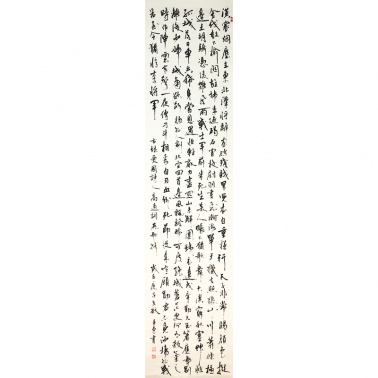 漢家煙塵在東北漢將辭家破殘賊男兒本自重橫行天子非常賜顏色摐
金伐鼓下榆關旌旆逶迤碣石間校尉羽書飛瀚海單于獵火照狼山山川蕭條極
邊土胡騎憑陵雜風雨戰士軍前半死生美人帳下猶歌舞大漠窮秋塞草
孤城落日鬥兵稀身當恩遇恆輕敵力盡關山未解圍鐵衣遠戍辛勤久玉箸應啼別
離後少婦城南欲斷腸征人薊北空回首邊風飄飄那可度絕域蒼茫更何有殺氣三
時作陣雲寒聲一夜傳刁斗相看白刃血紛紛死節從來豈顧勳君不見沙場征戰
苦至今猶憶李將軍
愛國詩人高適 燕歌行